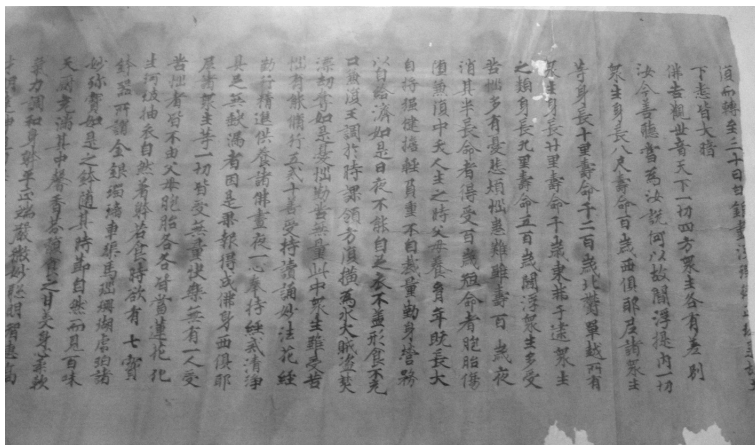 復而轉至三十日白銀
下悉皆大暗
佛告觀世音天下一切四方眾生各有差別
汝今善聽當為汝說何以故閻浮提內一切
眾生身長八尺壽命百歲西俱耶尼諸眾生
等身長十里壽命千二百歲北鬱單越所有
眾生身長廿里壽命千歲東弗于逮眾生
之類身長九里壽命五百歲閻浮眾生多受
苦惱多有憂悲煩惱患難雖壽百歲夜
消其半長命者得受百歲短命者胞胎傷
須無復中夭人生之時父母養育年既長大
自將強健擔輕負重不自裁量勤身營務
以自給濟如是日夜不能自足衣不蓋形食不充
口無復王調於時課領方復橫為水火賊盜
深劫奪如是憂惱勤苦無量此中眾生雖受苦
惱有能修行五戒十善受持讀誦妙法花經
勤行精進供養諸佛晝夜一心奉持經戒清淨
具足無缺漏者因是果報得成佛身西俱耶
尼諸眾生等一切皆受無量快樂無有一人受
苦惱者皆不由父母胞胎各各皆當蓮花化
生河枝抽衣自然著體若食時欲有七寶
鉢器所謂金銀瑠璃車璖馬瑙珊瑚虎珀諸
妙珍寶如是之鉢隨其時節自然而且百味
天廚充滿其中馨香芬馥食之甘美身柔軟
氣力調和身體平正端嚴微妙聰明智惠高